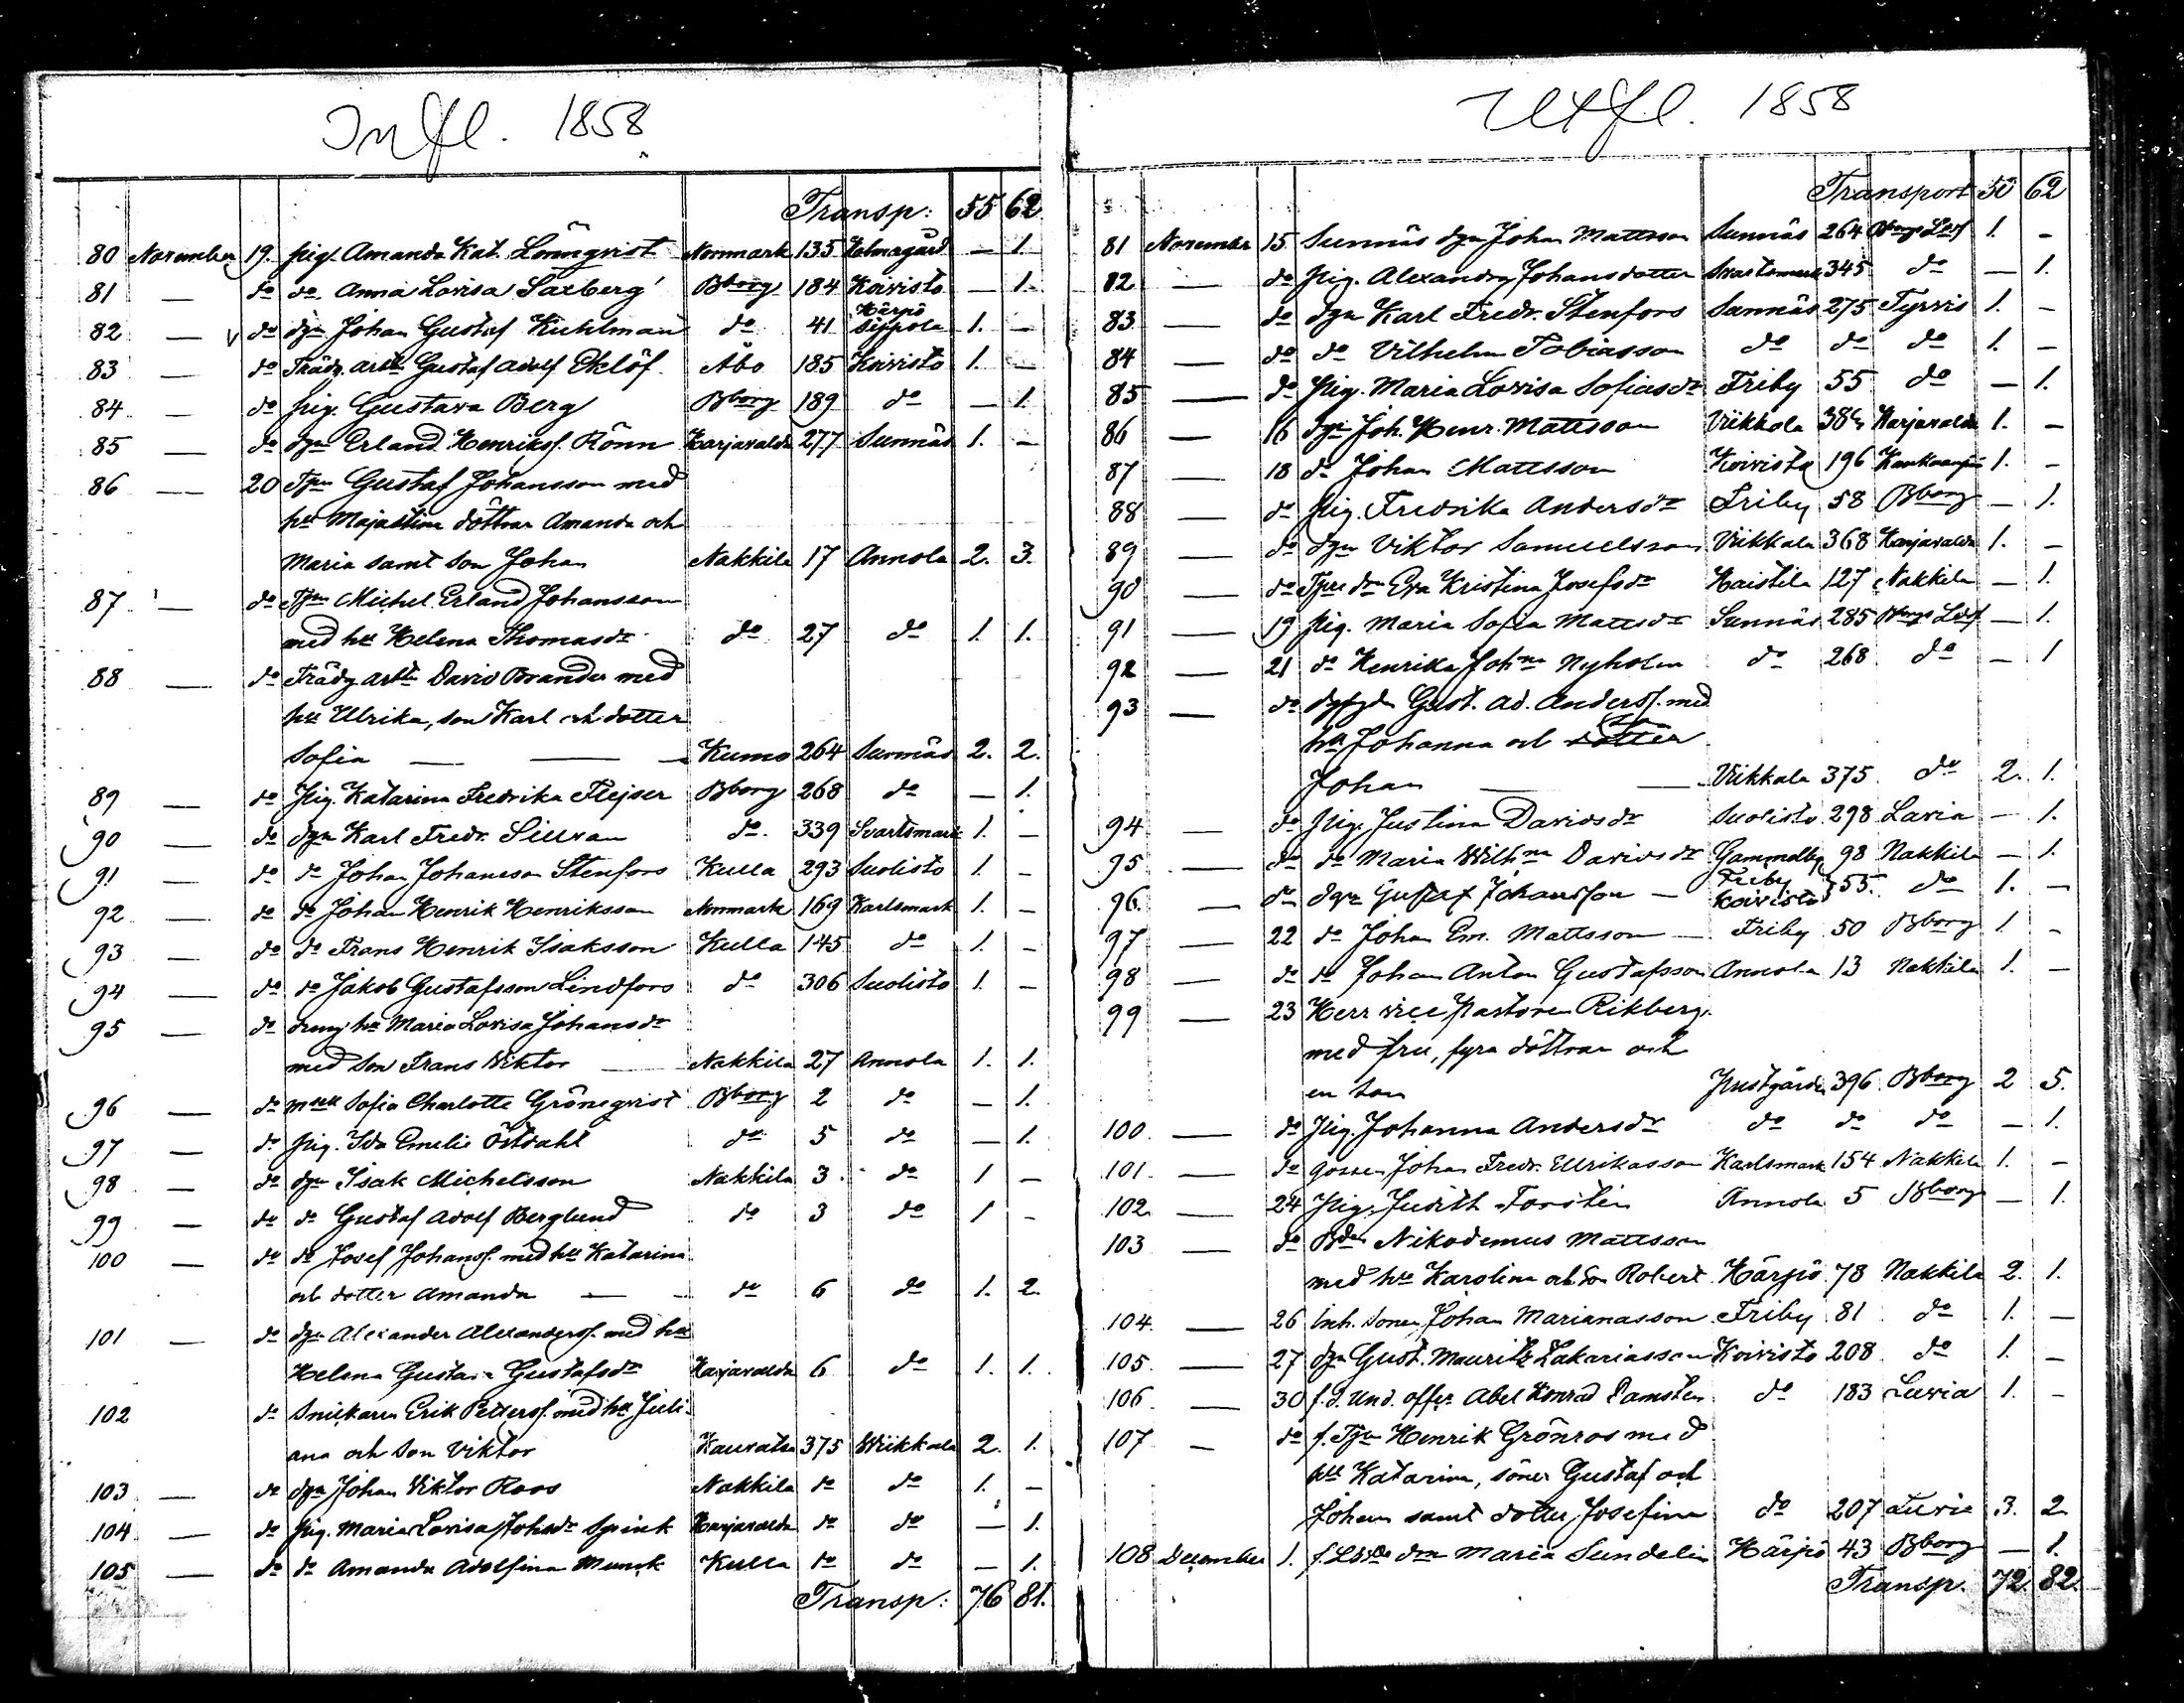 Infl. 1858
Transp: 55 62
80 November 19. pig. Amanda Kat. Lönnqvist Norrmark 135 Holmagård — 1.
81 — do do Anna Lovisa Saxberg Bborg 184 Koivisto — 1.
Härpö
82 — v do dgn Johan Gustaf Kuhlman do 41 Sippola 1. —
83 — do Trädg. arbt. Gustaf Adolf Eklöf Åbo 185 Koivisto 1. —
84 — do pig. Gustava Berg Bborg 189 do — 1.
85 — do dgn Erland Henriksf. Rönn Harjavalda 277 Sunnäs 1. —
86 — 20 Tpn Gustaf Johansson med
hu Majastina döttrar Amanda och
Maria samt son Johan Nakkila 17 Annola 2. 3.
87 — do Tpn Michel Erland Johansson
med hu Helena Thomasdr do 27 do 1. 1.
88 — do Trädg arbtr David Brander med
hu Ulrika, son Karl och dotter
Sofia — — Kumo 264 Sunnäs 2. 2.
89 — do Pig. Katarina Fredrika Flejser Bborg 268 do — 1.
90 — do dgn Karl Fredr. Sillvan do 339 Svartsmark 1. —
91 — do do Johan Johansson Stenfors Kulla 293 Suolisto 1. —
92 — do do Johan Henrik Henriksson Norrmark 169 Karlsmark 1. —
93 — do do Frans Henrik Isaksson Kulla 145 do 1. —
94 — do do Jakob Gustafsson Lindfors do 306 Suolisto 1. —
95 — do dreng hu Maria Lovisa Johansdr
med son Frans Viktor — Nakkila 27 Annola 1. 1.
96 — do msell Sofia Charlotte Grönqvist Bborg 2 do — 1.
97 — do pig. Ida Emelie Östdahl do 5 do — 1.
98 — do dgn Isak Michelsson Nakkila 3 do 1 —
99 — do do Gustaf Adolf Berglund do 3 do 1 -
100 — do do Josef Johansf. med hu Katarina
och dotter Amanda — do 6 do 1. 2.
101 — do dgn Alexander Alexandersf. med hu
Helena Gustava Gustafsdr Harjavalda 6 do 1. 1.
102 do Snickaren Erik Pettersf. med hu Juli-
ana och son Viktor Kauvatsa 375 Wiikkala 2. 1.
103 — do dgn Johan Viktor Roos Nakkila do do 1. —
104 — do pig. Maria Lovisa Johsdr Spink Harjavalda do do — 1.
105 — do do Amanda Adolfina Munck Kulla do do — 1.
Transp: 76 81.
Utfl. 1858
Transport 50 62
81 November 15 Sunnäs dgn Johan Mattsson Sunnäs 264 Bborgs Ldsf 1. —
82 — do Pig. Alexandra Johansdotter Svartsmark 345 do — 1.
83 — do dgn Karl Fredr. Stenfors Sunnäs 275 Tyrvis 1. —
84 — do do Vilhelm Tobiasson do do do 1. —
85 — do Pig. Maria Lovisa Sofiasdr Friby 55 do — 1.
86 — 16 dgn Joh. Henr. Mattsson Viikkala 384 Harjavalda 1. —
87 — 18 do Johan Mattsson Koivisto 196 Kankaanpää 1. —
88 — do Pig. Fredrika Andersdr Friby 58 Bborg — 1.
89 — do dgn Viktor Samuelsson Viikkala 368 Harjavalda 1. —
90 — do Tpre dr Eva Kristina Josefsdr Haistila 127 Nakkila — 1.
91 — 19 Pig. Maria Sofia Mattsdr Sunnäs 285 Bborgs Ldsf — 1.
92 — 21 do Henrika Johna Nyholm do 268 do — 1
93 — do Gust. Ad. Andersf. med
son
hu Johanna och dotter
Johan — — Viikkala 375 do 2. 1.
94 — do Pig. Justina Davidsdr Suolisto 298 Lavia — 1.
95 — do do Maria Wilhna Davidsdr Gammelby 98 Nakkila — 1.
Friby
96. — do dgn Gustaf Johansson — Koivisto 55. do 1. —
97 — 22 do Johan Em. Mattsson — Friby 50 Bborg 1 -
98 — do do Johan Anton Gustafsson Annola 13 Nakkila 1. —
99 — 23 Herr vice Pastoren Rikberg
med fru, fyra döttrar och
en son Prestgården 396 Bborg 2 5.
100 — do Pig. Johanna Andersdr do do do — 1.
101 — do gossen Johan Fredr. Ulrikasson Karlsmark 154 Nakkila 1. —
102 — 24 Pig. Judith Forstén Annola 5 Bborg — 1.
103 — do Bdn Nikodemus Mattsson
med hu Karolina och son Robert Härpö 78 Nakkila 2. 1.
104 — 26 Inh. sonen Johan Marianasson Friby 81 do 1. —
105 — 27 dgn Gust. Mauritz Zakariasson Koivisto 208 do 1. —
106 — 30 f.d. und. offic. Abel Konrad Damsten do 183 Luvia 1. -
107 — do f. Tpn Henrik Grönros med
hu Katarina, söner Gustaf och
Johan samt dotter Josefina do 207 Luvia 3. 2
108 December 1. dr Maria Sundelin Härpö 43 Bborg — 1.
Transp. 72. 82.